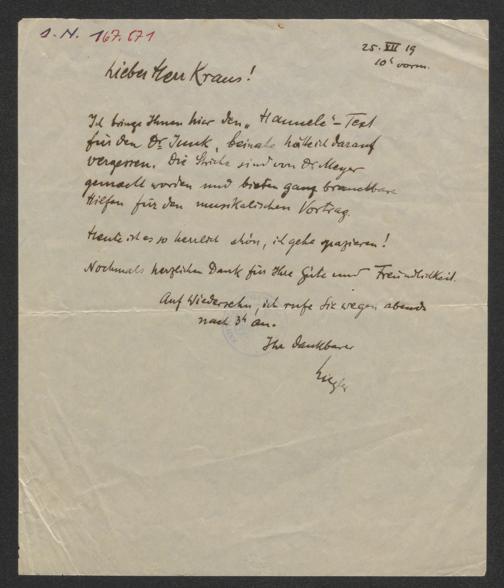 I. N. 167.671
25. VII 19
10h vorm.
Lieber Herr Kraus!
Ich bringe Ihnen hier den „Hannele"-Text
für den Dr. Junk, beinahe hätte ich darauf
vergessen. Die Striche sind von Dr. Meyer
gemacht worden und bieten ganz brauchbare
Hilfen für den musikalischen Vortrag.
Heute ist es so herrlich schön, ich gehe spazieren!
Nochmals herzlichen Dank für Ihre Güte und Freundlichkeit.
Auf Wiedersehn, ich rufe Sie wegen abends
nach 3h an.
Ihr dankbarer